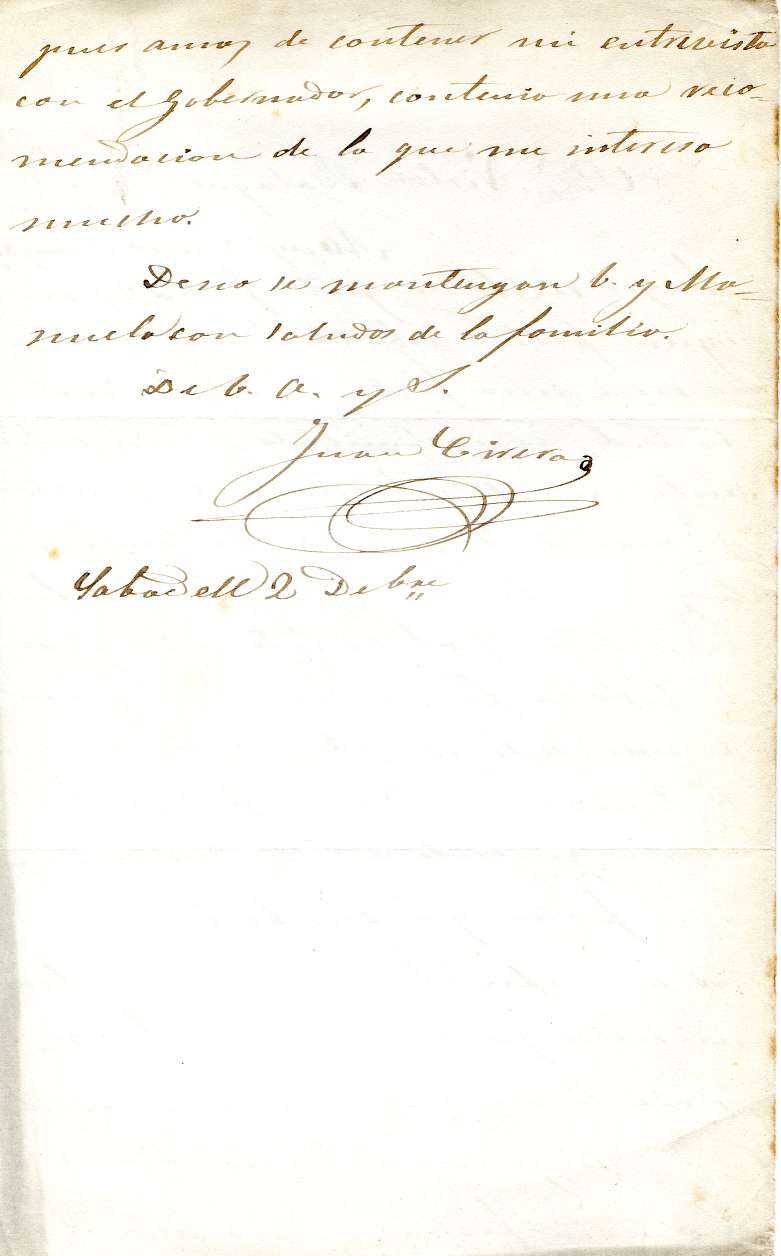 pues amas de contener mi entrevista
con el Gobernador, contenia una reco-
mendacion de la que me interesa
mucho.
Deseo se mantengan b. y Ma-
nuela con saludos de la familia.
De b. A. y S.
Juan Cirera
Sabadell 2 Debre